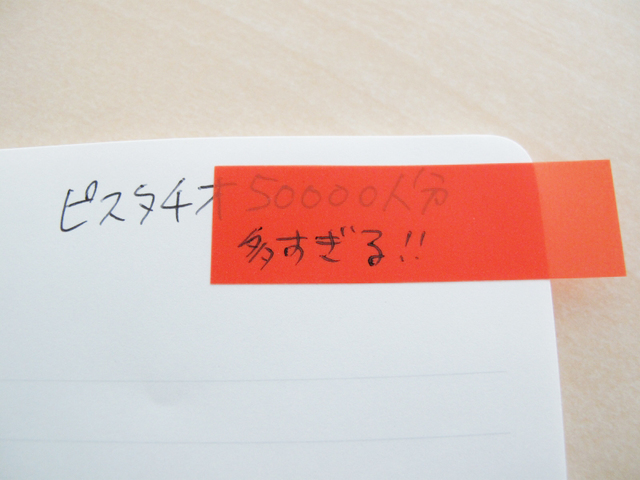 ピスタチオ50000人分
多すぎる!!